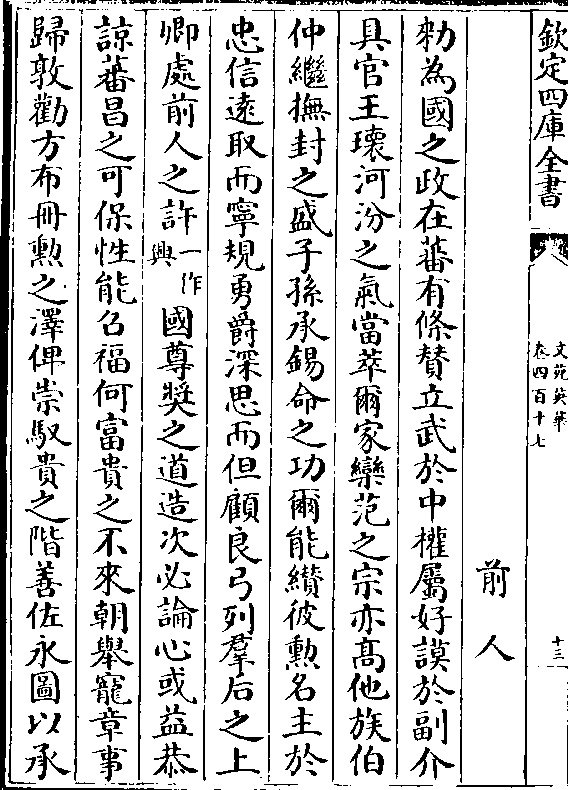 欽定四庫全書
文苑英華
卷四百十七
十三
前人
勑為國之政在蕃有條賛立武於中權屬好謨於副介
具官王瓌河汾之氣當萃爾家欒范之宗亦髙他族伯
仲繼撫封之盛子孫承錫命之功爾能纘彼勲名主於
忠信逺取而寧規勇爵深思而但顧良弓列羣后之上
卿處前人之許一作興國尊奬之道造次必論心或益恭
諒蕃昌之可保性能召福何富貴之不來朝舉寵章事
歸敦勸方布冊勲之澤俾崇馭貴之階善佐永圖以承